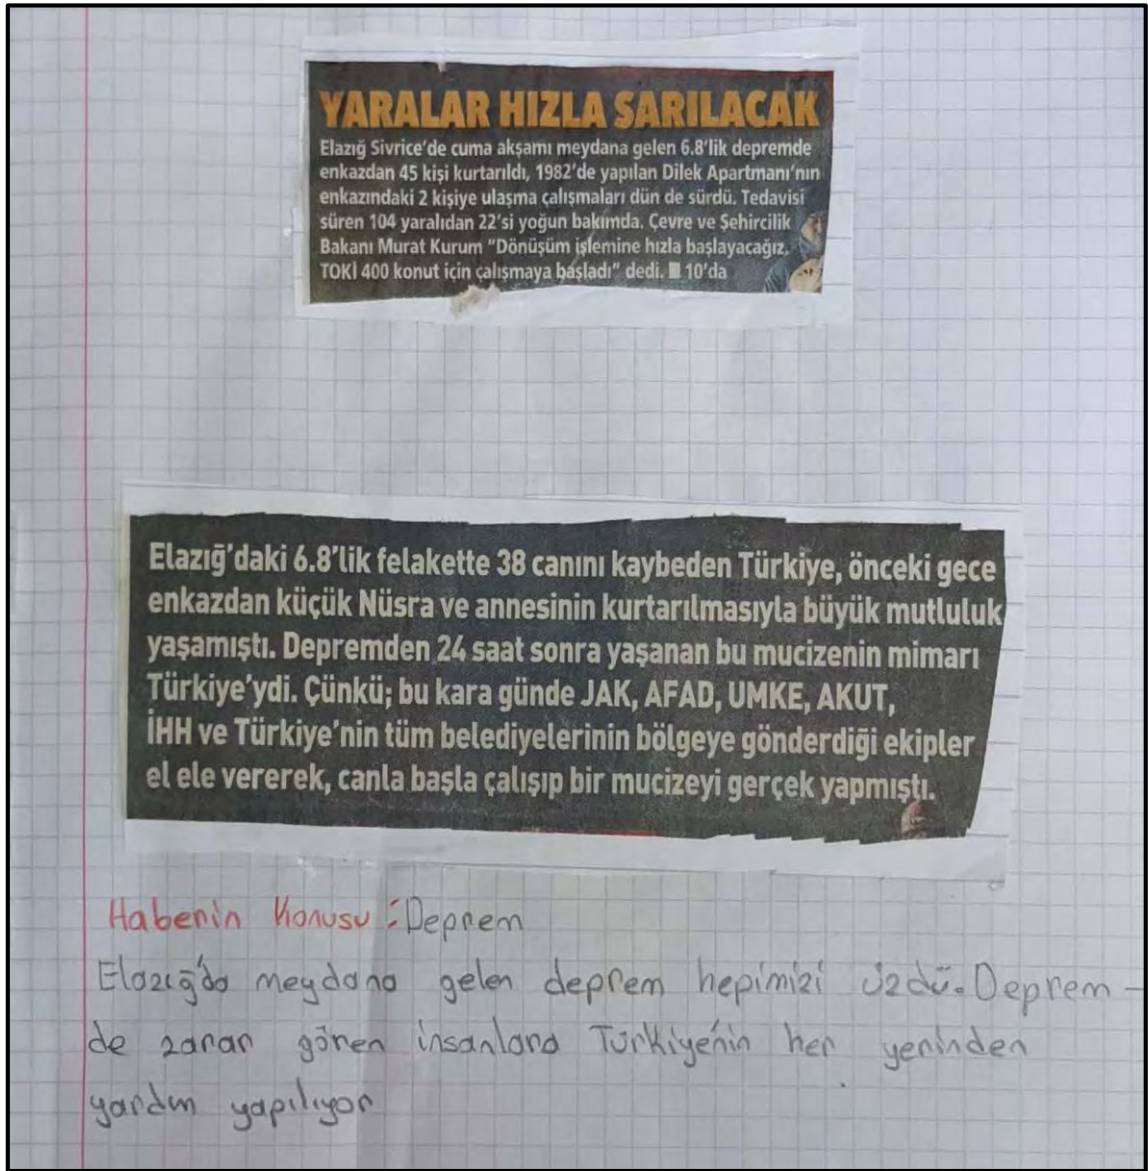 YARALAR HIZLA SARILACAK
Elazığ Sivrice'de cuma akşamı meydana gelen 6.8'lik depremde
enkazdan 45 kişi kurtarıldı, 1982'de yapılan Dilek Apartmanı'nın
enkazındaki 2 kişiye ulaşma çalışmaları dün de sürdü. Tedavisi
süren 104 yaralıdan 22'si yoğun bakımda. Çevre ve Şehircilik
Bakanı Murat Kurum "Dönüşüm işlemine hızla başlayacağız.
TOKİ 400 konut için çalışmaya başladı" dedi. ■ 10'da
Elazığ'daki 6.8'lik felakette 38 canını kaybeden Türkiye, önceki gece
enkazdan küçük Nüsra ve annesinin kurtarılmasıyla büyük mutluluk
yaşamıştı. Depremden 24 saat sonra yaşanan bu mucizenin mimarı
Türkiye'ydi. Çünkü; bu kara günde JAK, AFAD, UMKE, AKUT,
İHH ve Türkiye'nin tüm belediyelerinin bölgeye gönderdiği ekipler
el ele vererek, canla başla çalışıp bir mucizeyi gerçek yapmıştı.
Haberin Konusu : Deprem
Elazığ'da meydana gelen deprem hepimizi üzdü. Deprem -
de zarar gören insanlara Türkiye'nin her yerinden
yardım yapılıyor